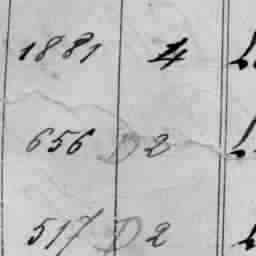 1881 4
656 D 2
517 D 2